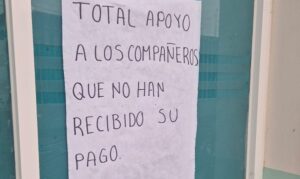 TOTAL APOYO
A LOS COMPAÑEROS
QUE NO HAN
RECIBIDO SU
PAGO.